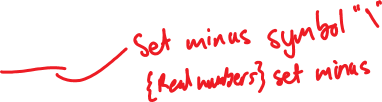 Set minus symbol "\"
{Real numbers} set minus